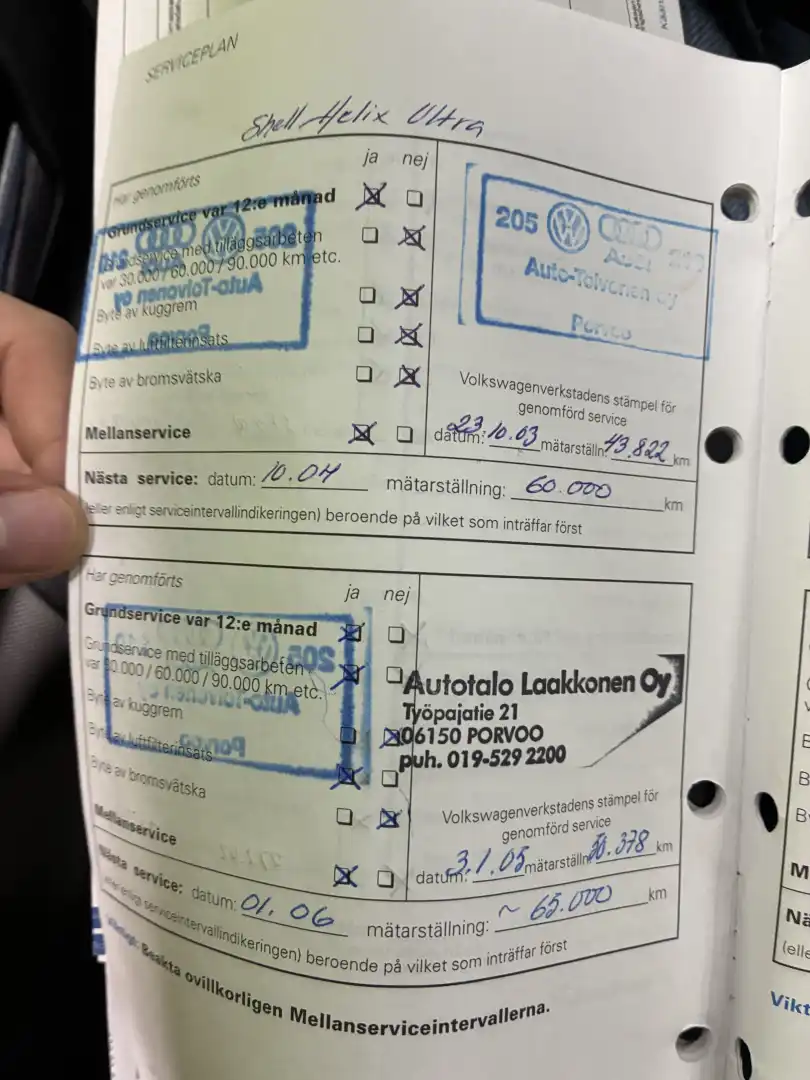 SERVICEPLAN
Shell Helix Ultra
Har genomförts ja nej
Grundservice var 12:e månad
Grundservice med tilläggsarbeten
var 30.000 / 60.000 / 90.000 km etc.
Byte av kuggrem
Byte av luftfilterinsats
Byte av bromsvätska
Mellanservice
205 Audi 212
Auto-Toivonen oy
Porvoo
Volkswagenverkstadens stämpel för
genomförd service
datum: 23.10.03 mätarställn: 43.822 km
Nästa service: datum: 10.04 mätarställning: 60.000 km
(eller enligt serviceintervallindikeringen) beroende på vilket som inträffar först
Har genomförts ja nej
Grundservice var 12:e månad
Grundservice med tilläggsarbeten
var 30.000 / 60.000 / 90.000 km etc.
Byte av kuggrem
Byte av luftfilterinsats
Byte av bromsvätska
Mellanservice
Autotalo Laakkonen Oy
Työpajatie 21
06150 PORVOO
puh. 019-529 2200
Volkswagenverkstadens stämpel för
genomförd service
datum: 3.1.05 mätarställn: .378 km
Nästa service: datum: 01.06 mätarställning: ~ 65.000 km
(eller enligt serviceintervallindikeringen) beroende på vilket som inträffar först
Viktigt: Beakta ovillkorligen Mellanserviceintervallerna.